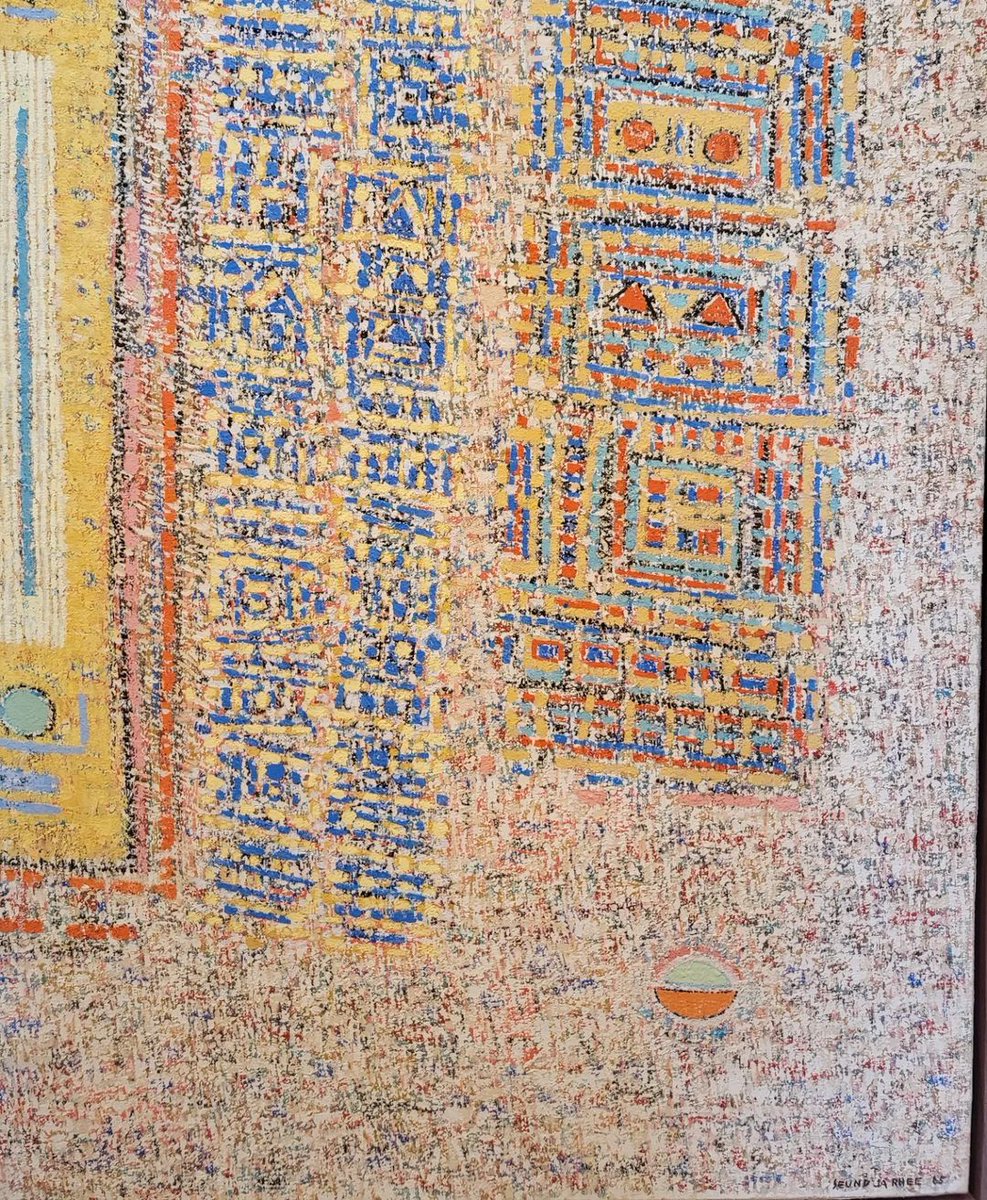 SEUND JA RHEE 65